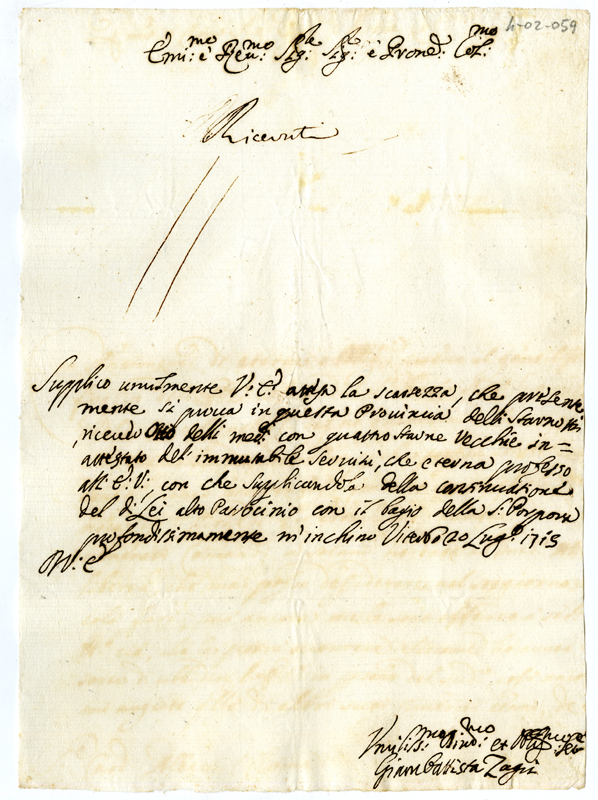 4-02-059
Emi:me è Reu:mo Sig:re Sig:re è Prone: Col:mo
Riceuuti
Supplico umilmente V: E: attesa la scarsezza, che presente
mente si proua in questa Prouincia delli Starnotti
riceuere otto delli med:i con quattro starne vecchie in=
attestato del immutabile seruitù, che eterna professo
all' E: V:, con che supplicandola della continuatione
del di Lei alto Patrocinio con il bagio della S: Porpora
profondissimamente m' inchino Viterbo 20 Lug:o 1715
Di V: E
Vmiliss:mo Diuo:mo et ser
Giambattista Zagri